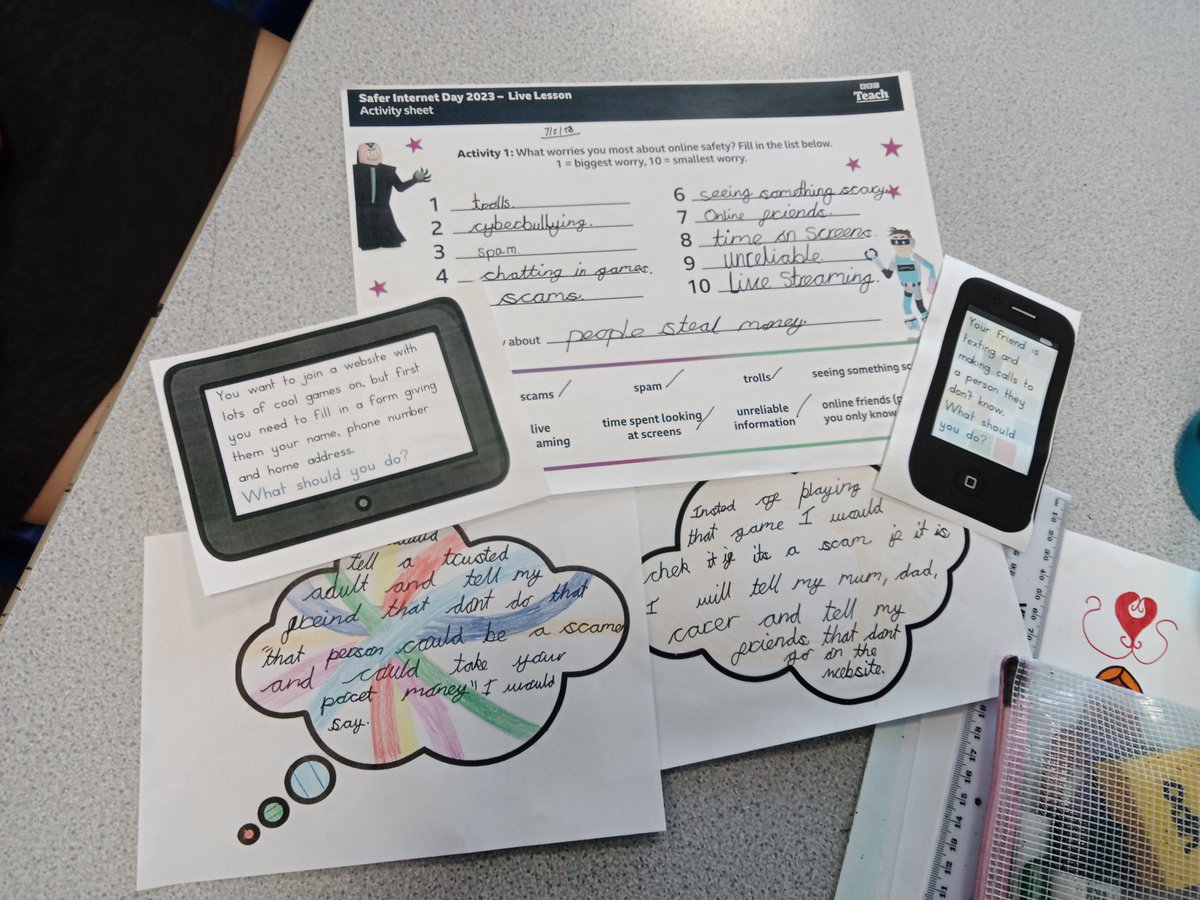 Safer Internet Day 2023 – Live Lesson
Activity sheet
BBC
Teach
Activity 1: What worries you most about online safety? Fill in the list below.
1 = biggest worry, 10 = smallest worry.
1 trolls.
2 cyberbullying.
3 spam.
4 chatting in games.
scams.
6 seeing something scary
7 Online friends.
8 time on screens.
9 unreliable.
10 Live Streaming.
about people steal money
scams
spam
trolls
seeing something sc
live
aming
time spent looking
at screens
unreliable
information
online friends (p
you only know
You want to join a website with
lots of cool games on, but first
you need to fill in a form giving
them your name, phone number
and home address.
What should you do?
Your friend is
texting and
making calls to
a person they
don't know.
What should
you do?
tell a trusted
adult and tell my
freind that dont do that
"that person could be a scame
and could take your
pocet money" I would
say.
Insted of playing
that game I would
chek it if its a scam if it is
I will tell my mum, dad,
carer and tell my
friends that dont
go on the
website.